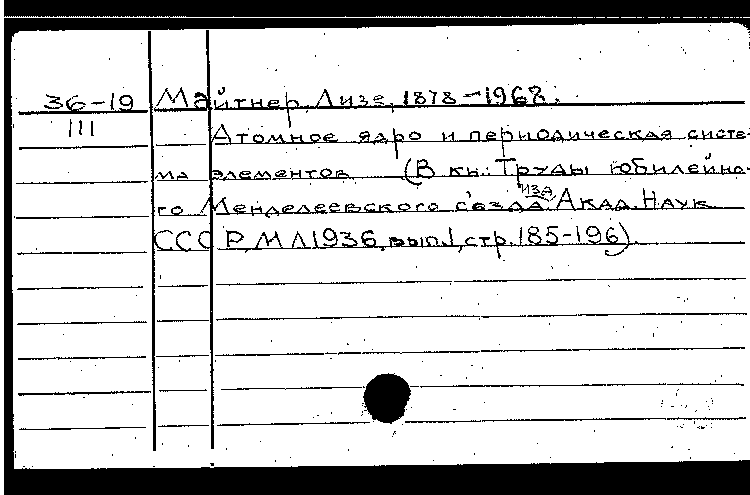 36-19 Майтнер, Лизе, 1878-1968.
III Атомное ядро и периодическая систе-
ма элементов (В кн.: Труды юбилейно-
го Менделеевского съезда. изд. Акад. Наук
СССР, М Л 1936, вып.1, стр. 185-196).